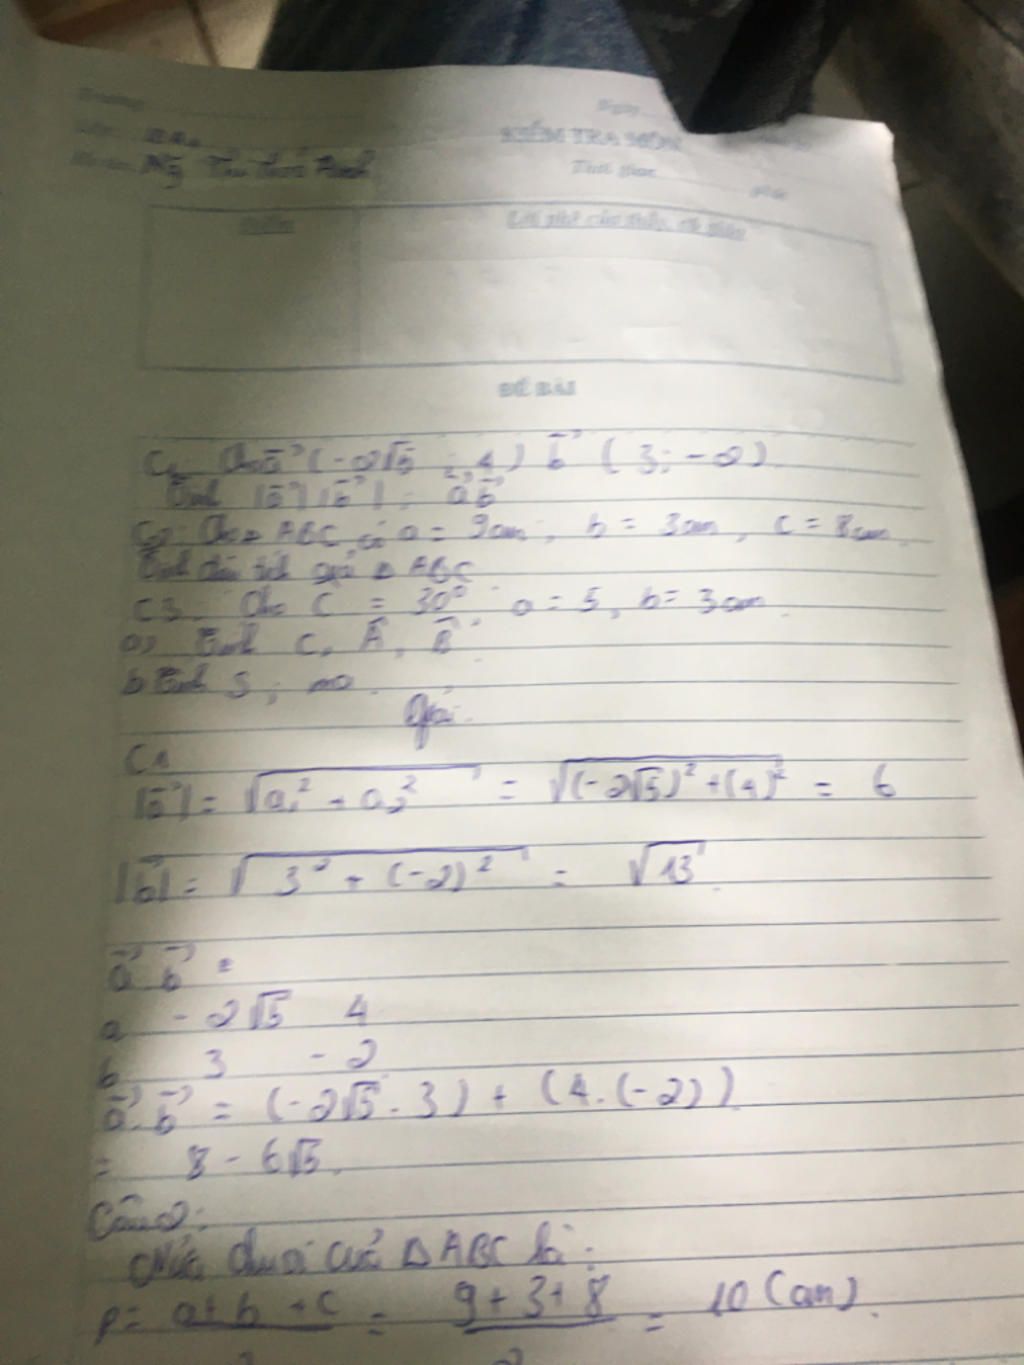 Trường
Ngày
Lớp:
KIỂM TRA MÔN
Họ tên: Ng Thị
Thời gian phút
Điểm
Lời phê của thầy, cô giáo
ĐỀ BÀI
C1: Cho a (-2√5 ; 4) b (3; -2)
Tính |a| |b| ; a b
C2: Cho Δ ABC có a = 9cm ; b = 3cm , c = 8cm
Tính diện tích Δ ABC
C3. Cho C = 30° a = 5, b = 3cm.
a) Tính C, A, B
b Tính S ; ma.
Giải.
C1
|a| = √a₁² + a₂² = √(-2√5)² + (4)² = 6
|b| = √3² + (-2)² = √13.
a b =
a -2√5 4
b 3 -2
a . b = (-2√5 . 3) + (4.(-2))
= 8 - 6√5.
Câu 2:
Nửa chu vi của Δ ABC là:
p = a + b + c = 9 + 3 + 8 = 10 (cm).
2 2